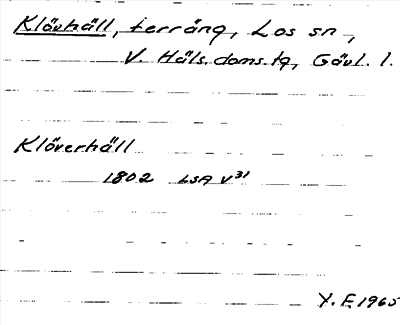 Klövhäll, terräng, Los sn,
V. Häls. doms.tg, Gävl. l.
Klöverhäll
1802 LSA V31
Y. E. 1965